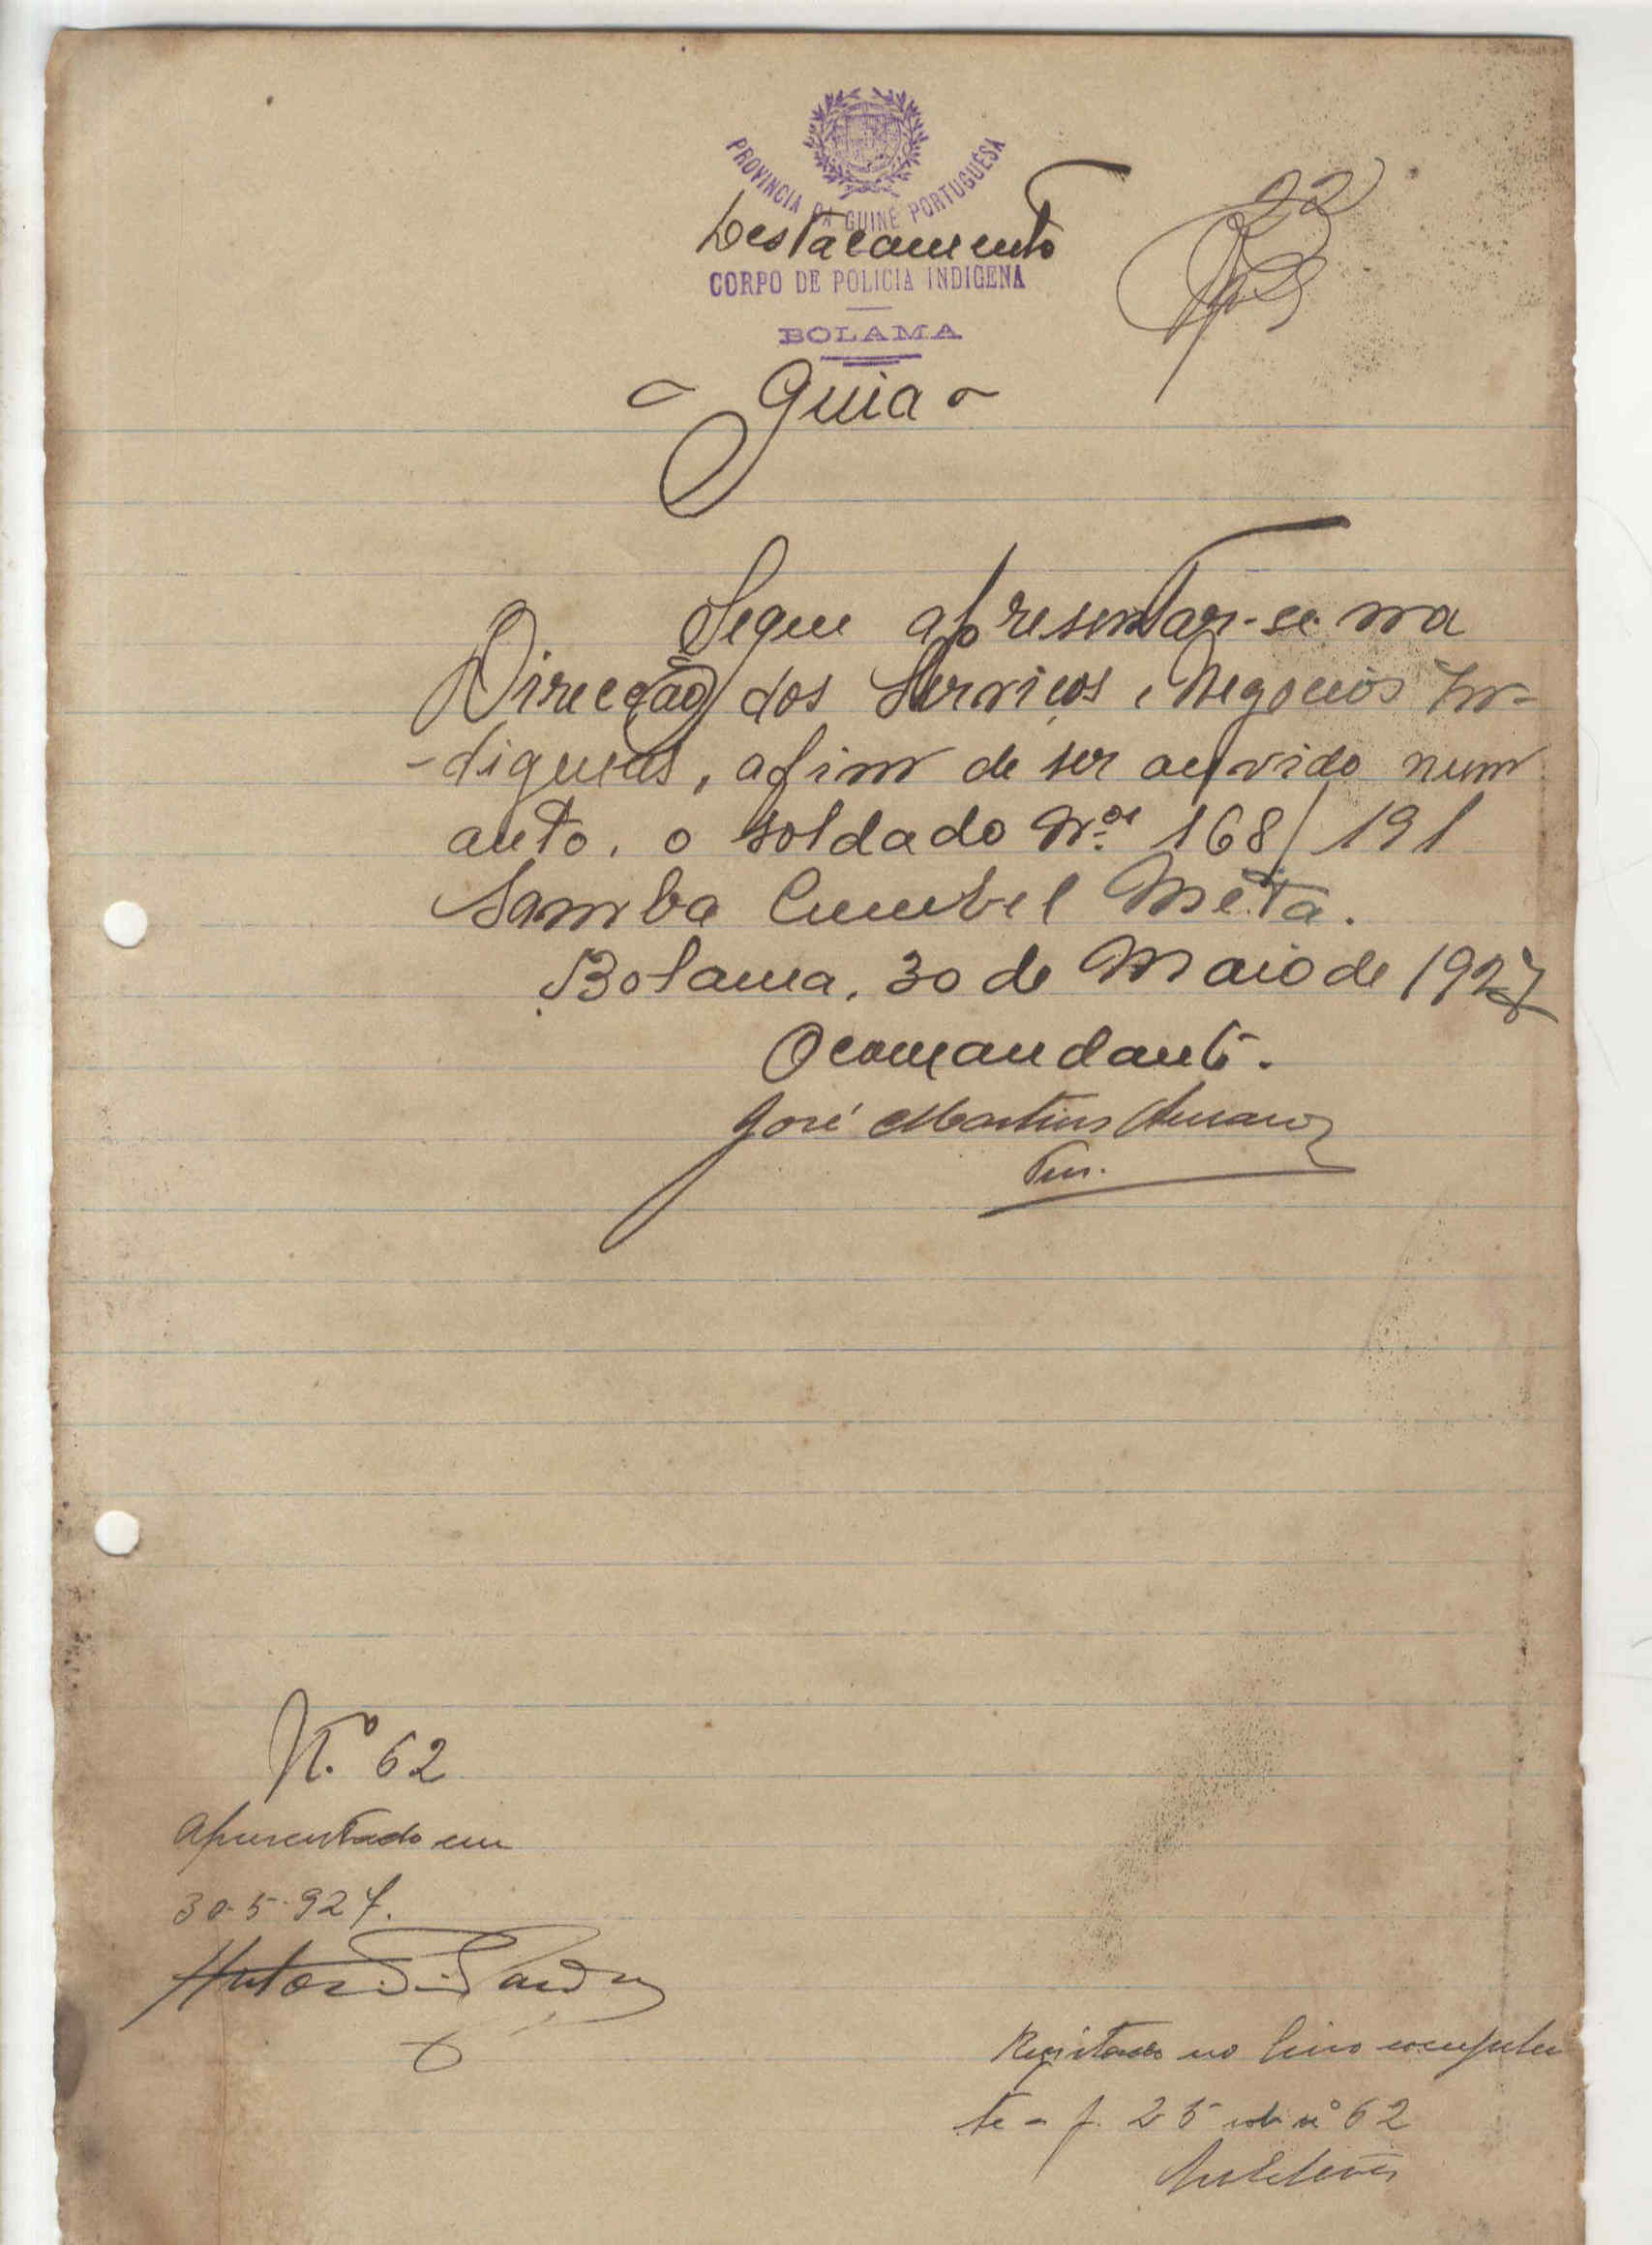 22
PROVINCIA DA GUINÉ PORTUGUÊSA
Destacamento
CORPO DE POLICIA INDIGENA
BOLAMA
- Guia -
Segue apresentar-se na
Direcção dos Serviços e Negocios In-
-digenas, afim de ser ouvido num
auto, o soldado Nº 168/191
Samba Cumbel Méta.
Bolama, 30 de Maio de 1927
O comandante.
José Martins
Ten.
N.º 62
Apresentado em
30-5-927.
Registado no livro competen
te a f. 25 sob nº 62